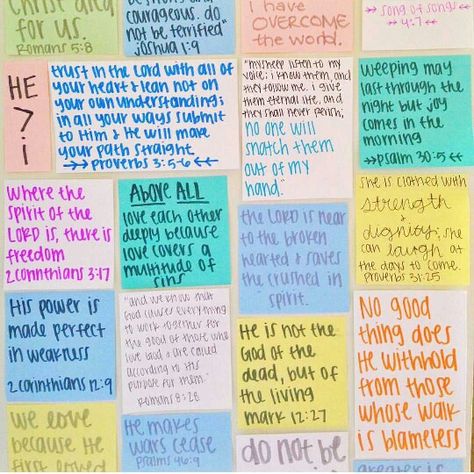 Christ died
for us.
Romans 5:8
courageous. do
not be terrified"
Joshua 1:9
I have
OVERCOME
the world.
song of song!
4:7
HE
>
i
trust in the Lord with all of
your heart & lean not on
your own understanding;
in all your ways submit
to Him & He will make
your path straight.
Proverbs 3:5-6
"my sheep listen to my
voice; i know them, and
they follow me. I give
them eternal life, and
they shall never perish;
no one will
snatch them
out of my
hand."
weeping may
last through the
night but joy
comes in the
morning
Psalm 30:5
where the
spirit of the
LORD is, there is
freedom
2 corinthians 3:17
ABOVE ALL
love each other
deeply because
love covers a
multitude of
sins
the LORD is near
to the broken
hearted & saves
the crushed in
spirit.
she is clothed with
strength
&
dignity; she
can laugh at
the days to come.
Proverbs 31:25
His power is
made perfect
in weakness
2 corinthians 12:9
"and we know that
God causes everything
to work together for
the good of those who
love God & are called
according to His
purpose for them."
Romans 8:28
He is not the
God of the
dead, but of
the living
mark 12:27
No good
thing does
He withhold
from those
whose walk
is blameless
we love
because He
first loved
He makes
wars cease
Psalms 46:9
do not be
greater is